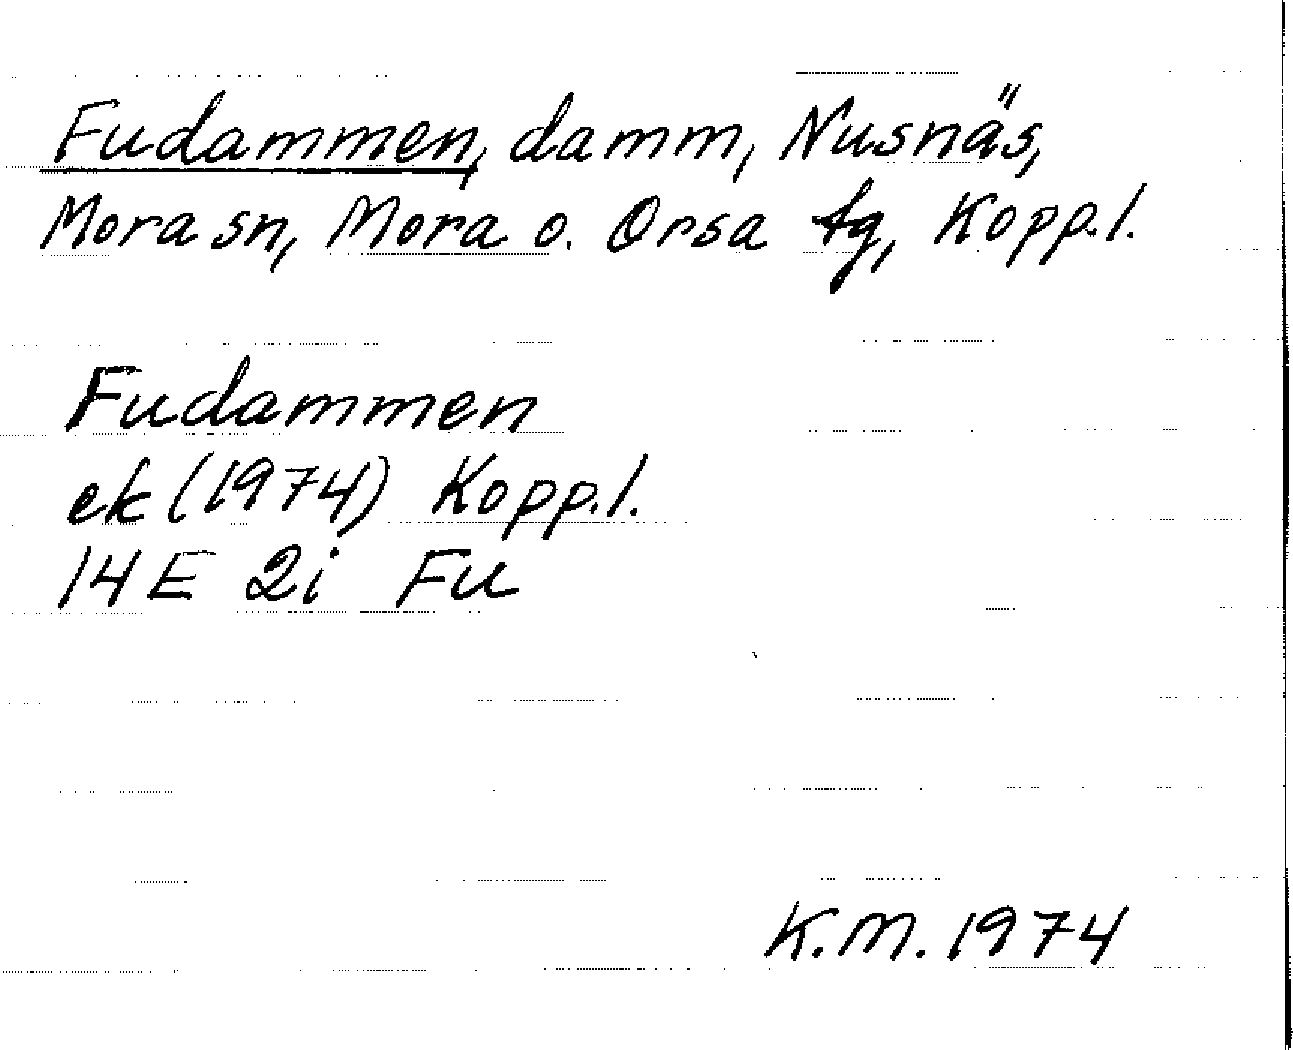 Fudammen, damm, Nusnäs,
Mora sn, Mora o. Orsa tg, Kopp.l.
Fudammen
ek (1974) Kopp.l.
14E 2i Fu
K.M. 1974